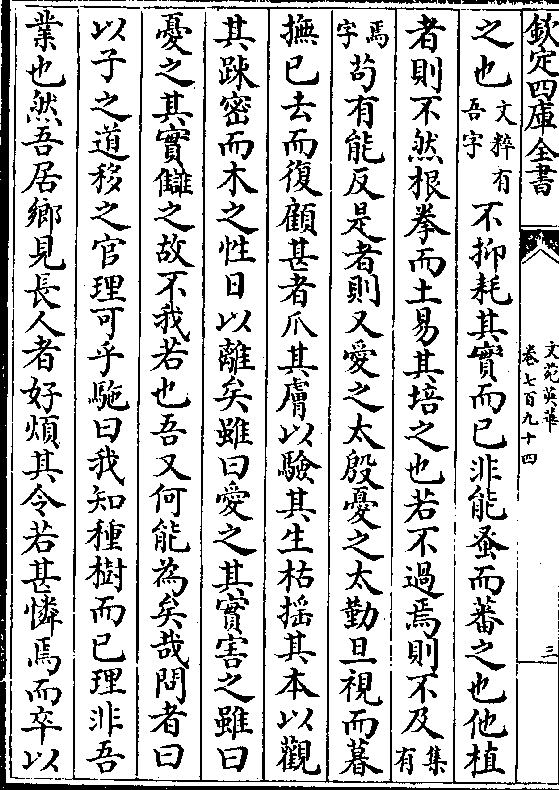 欽定四庫全書
文苑英華
卷七百九十四
三
之也文粹有吾字不抑耗其實而已非能蚤而蕃之也他植
者則不然根拳而土易其培之也若不過焉則不及集有
焉字苟有能反是者則又愛之太殷憂之太勤旦視而暮
撫已去而復顧甚者爪其膚以驗其生枯揺其本以觀
其踈密而木之性日以離矣雖曰愛之其實害之雖曰
憂之其實讎之故不我若也吾又何能為矣哉問者曰
以子之道移之官理可乎駞曰我知種樹而已理非吾
業也然吾居鄉見長人者好煩其令若甚憐焉而卒以